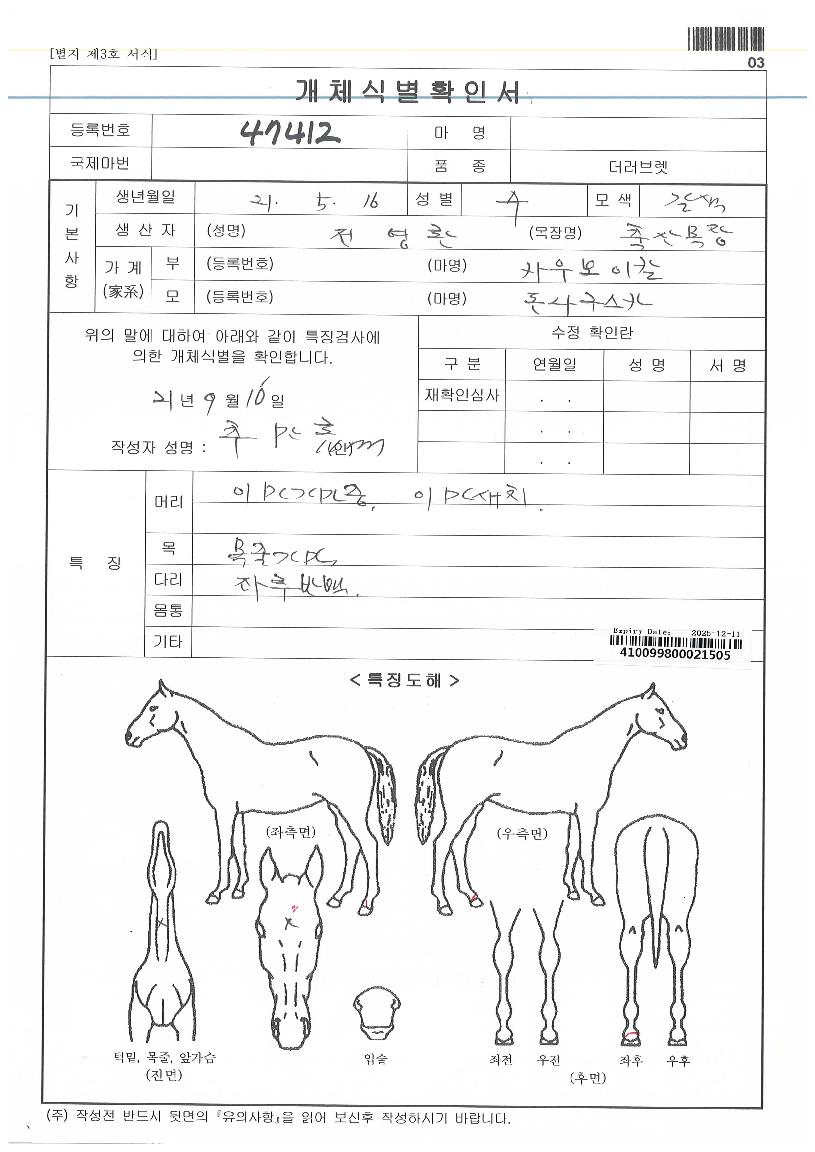 [별지 제3호 서식]
03
개체식별확인서
등록번호 47412 마 명
국제마번 품 종 더러브렛
기본사항
생년월일 21. 5. 16 성 별 수 모 색 갈색
생 산 자 (성명) 전영훈 (목장명) 축산목장
가 계 (家系) 부 (등록번호) (마명) 카우보이칼
모 (등록번호) (마명) 돈사구스카
위의 말에 대하여 아래와 같이 특징검사에
의한 개체식별을 확인합니다.
21년 9월 16일
작성자 성명 : (인)
수정 확인란
구 분 연월일 성 명 서 명
재확인심사 . .
. .
. .
특 징
머리
목 목줄가마
다리 좌후반백.
몸통
기타
Expiry Date: 2025-12-11
410099800021505
< 특징도해 >
(좌측면) (우측면)
턱밑, 목줄, 앞가슴
(진면)
입술
좌전 우전 좌후 우후
(후면)
(주) 작성전 반드시 뒷면의 『유의사항』을 읽어 보신후 작성하시기 바랍니다.